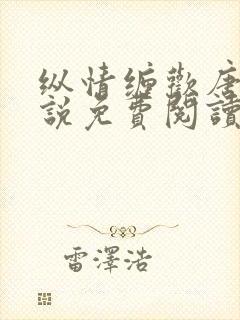 纵情缠歡唐
說免費閱讀
雷澤浩